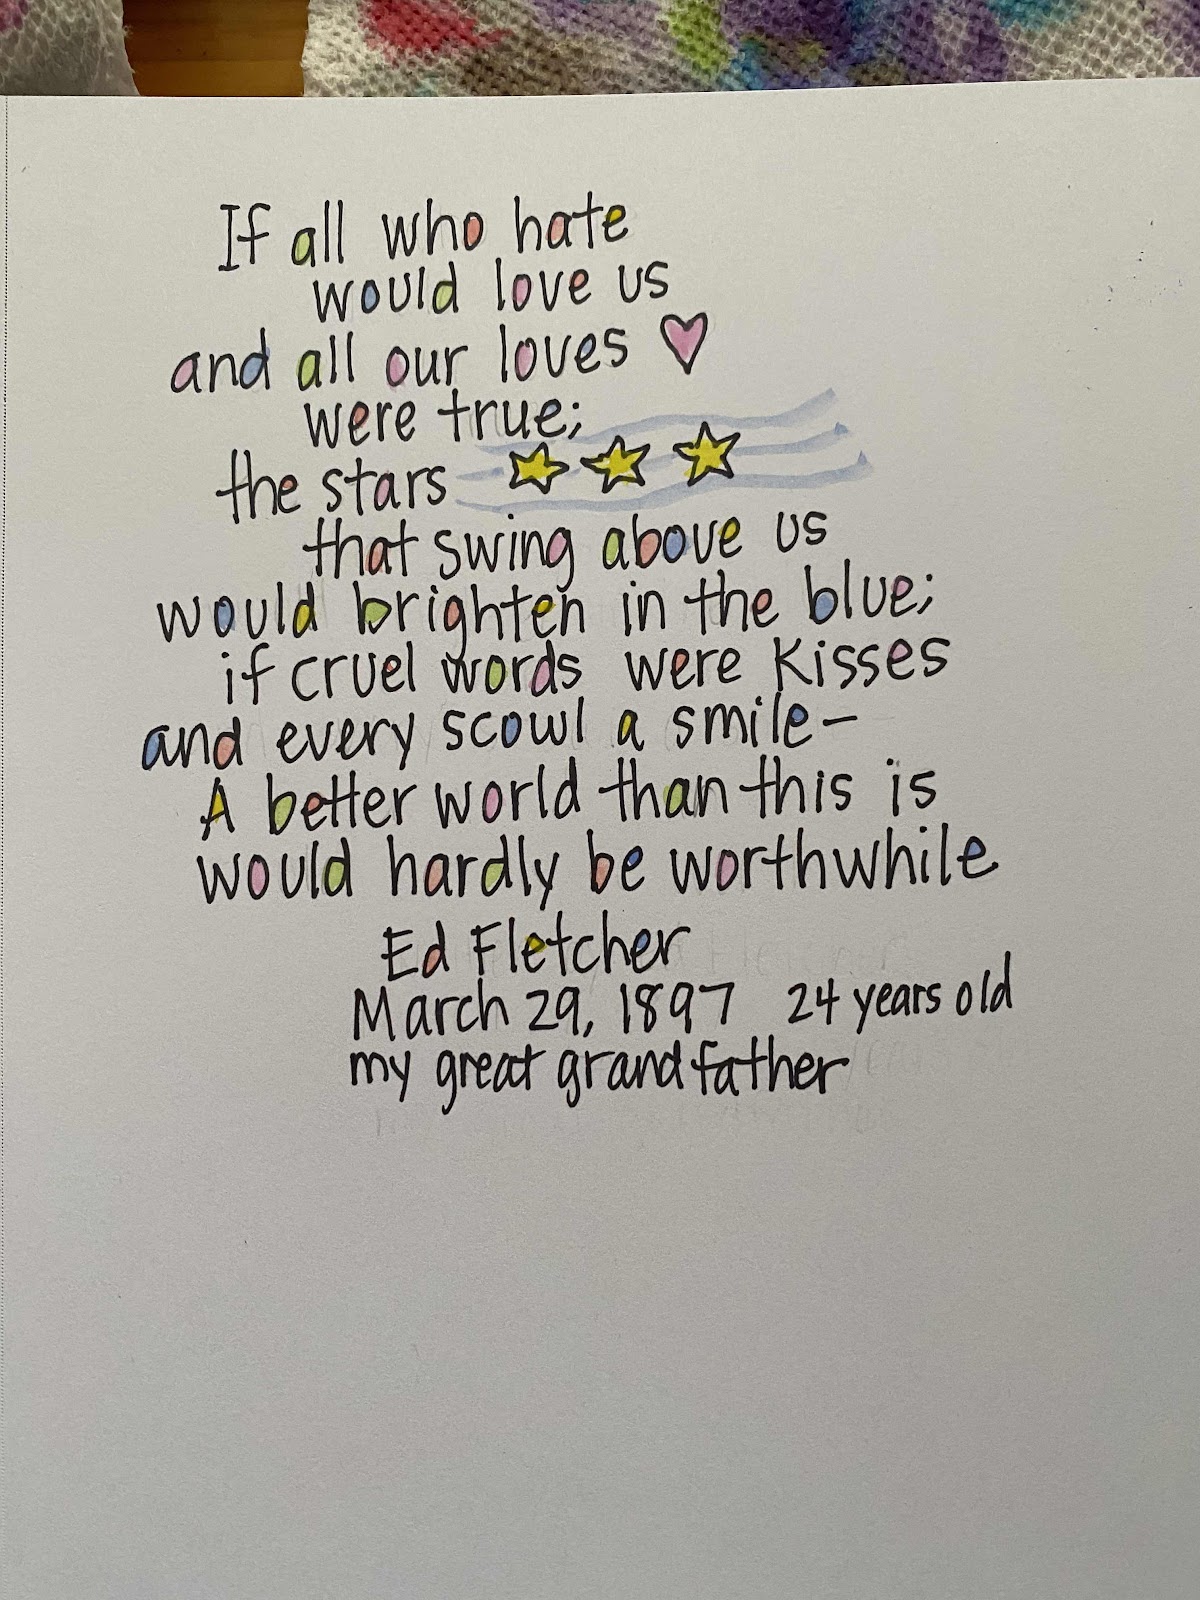 If all who hate
would love us
and all our loves
were true;
the stars
that swing above us
would brighten in the blue;
if cruel words were kisses
and every scowl a smile—
A better world than this is
would hardly be worthwhile
Ed Fletcher
March 29, 1897 24 years old
my great grandfather